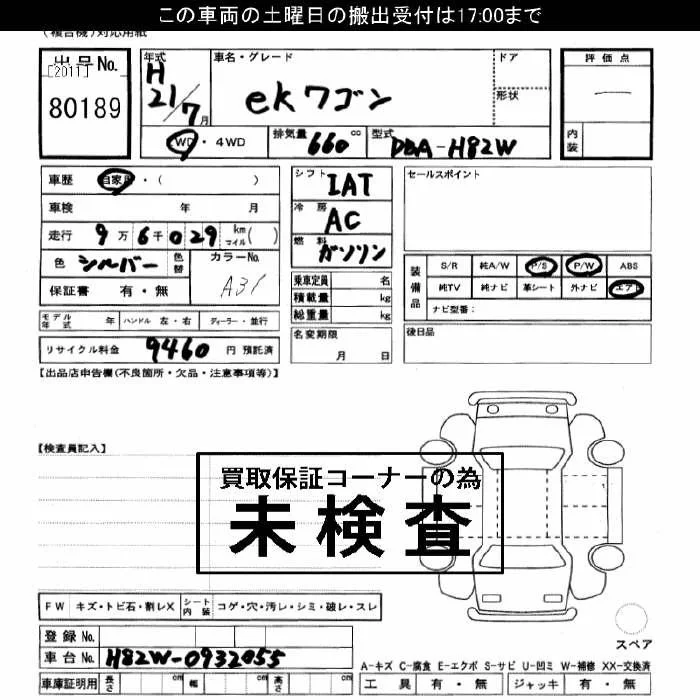 この車両の土曜日の搬出受付は17:00まで
(複合機)対応用紙
出品No.
[2011]
80189
年式
H
21/7月
車名・グレード
ekワゴン
ドア
形状
評価点
内装
WD・4WD
排気量 660 cc
型式 DBA-H82W
車歴 自家用・( )
車検 年 月
走行 9万6千029 km マイル( )
色 シルバー 色替
カラーNo.
A31
保証書 有・無
シフト IAT
冷房 AC
燃料 ガソリン
乗車定員 名
積載量 kg
総重量 kg
セールスポイント
装備品
S/R 純A/W P/S P/W ABS
純TV 純ナビ 革シート 外ナビ エアB
ナビ型番:
モデル年式 年 ハンドル 左・右 ディーラー・並行
リサイクル料金 9460 円 預託済
名変期限
月 日
後日品
【出品店申告欄(不良箇所・欠品・注意事項等)】
【検査員記入】
買取保証コーナーの為
未検査
FW キズ・トビ石・割レX シート内装 コゲ・穴・汚レ・シミ・破レ・スレ
登録No.
車台No. H82W-0932055
車庫証明用 長さ cm 幅 cm 高さ cm
スペア
A-キズ C-腐食 E-エクボ S-サビ U-凹ミ W-補修 XX-交換済
工具 有・無 ジャッキ 有・無